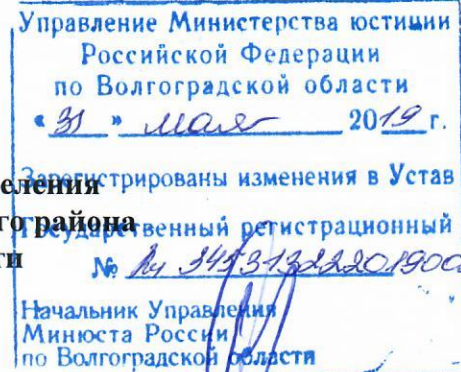 Управление Министерства юстиции
Российской Федерации
по Волгоградской области
« 31 » мая 2019 г.
Зарегистрированы изменения в Устав
еления
го района
Государственный регистрационный
ти
№ 34531322201900
Начальник Управления
Минюста России
по Волгоградской области